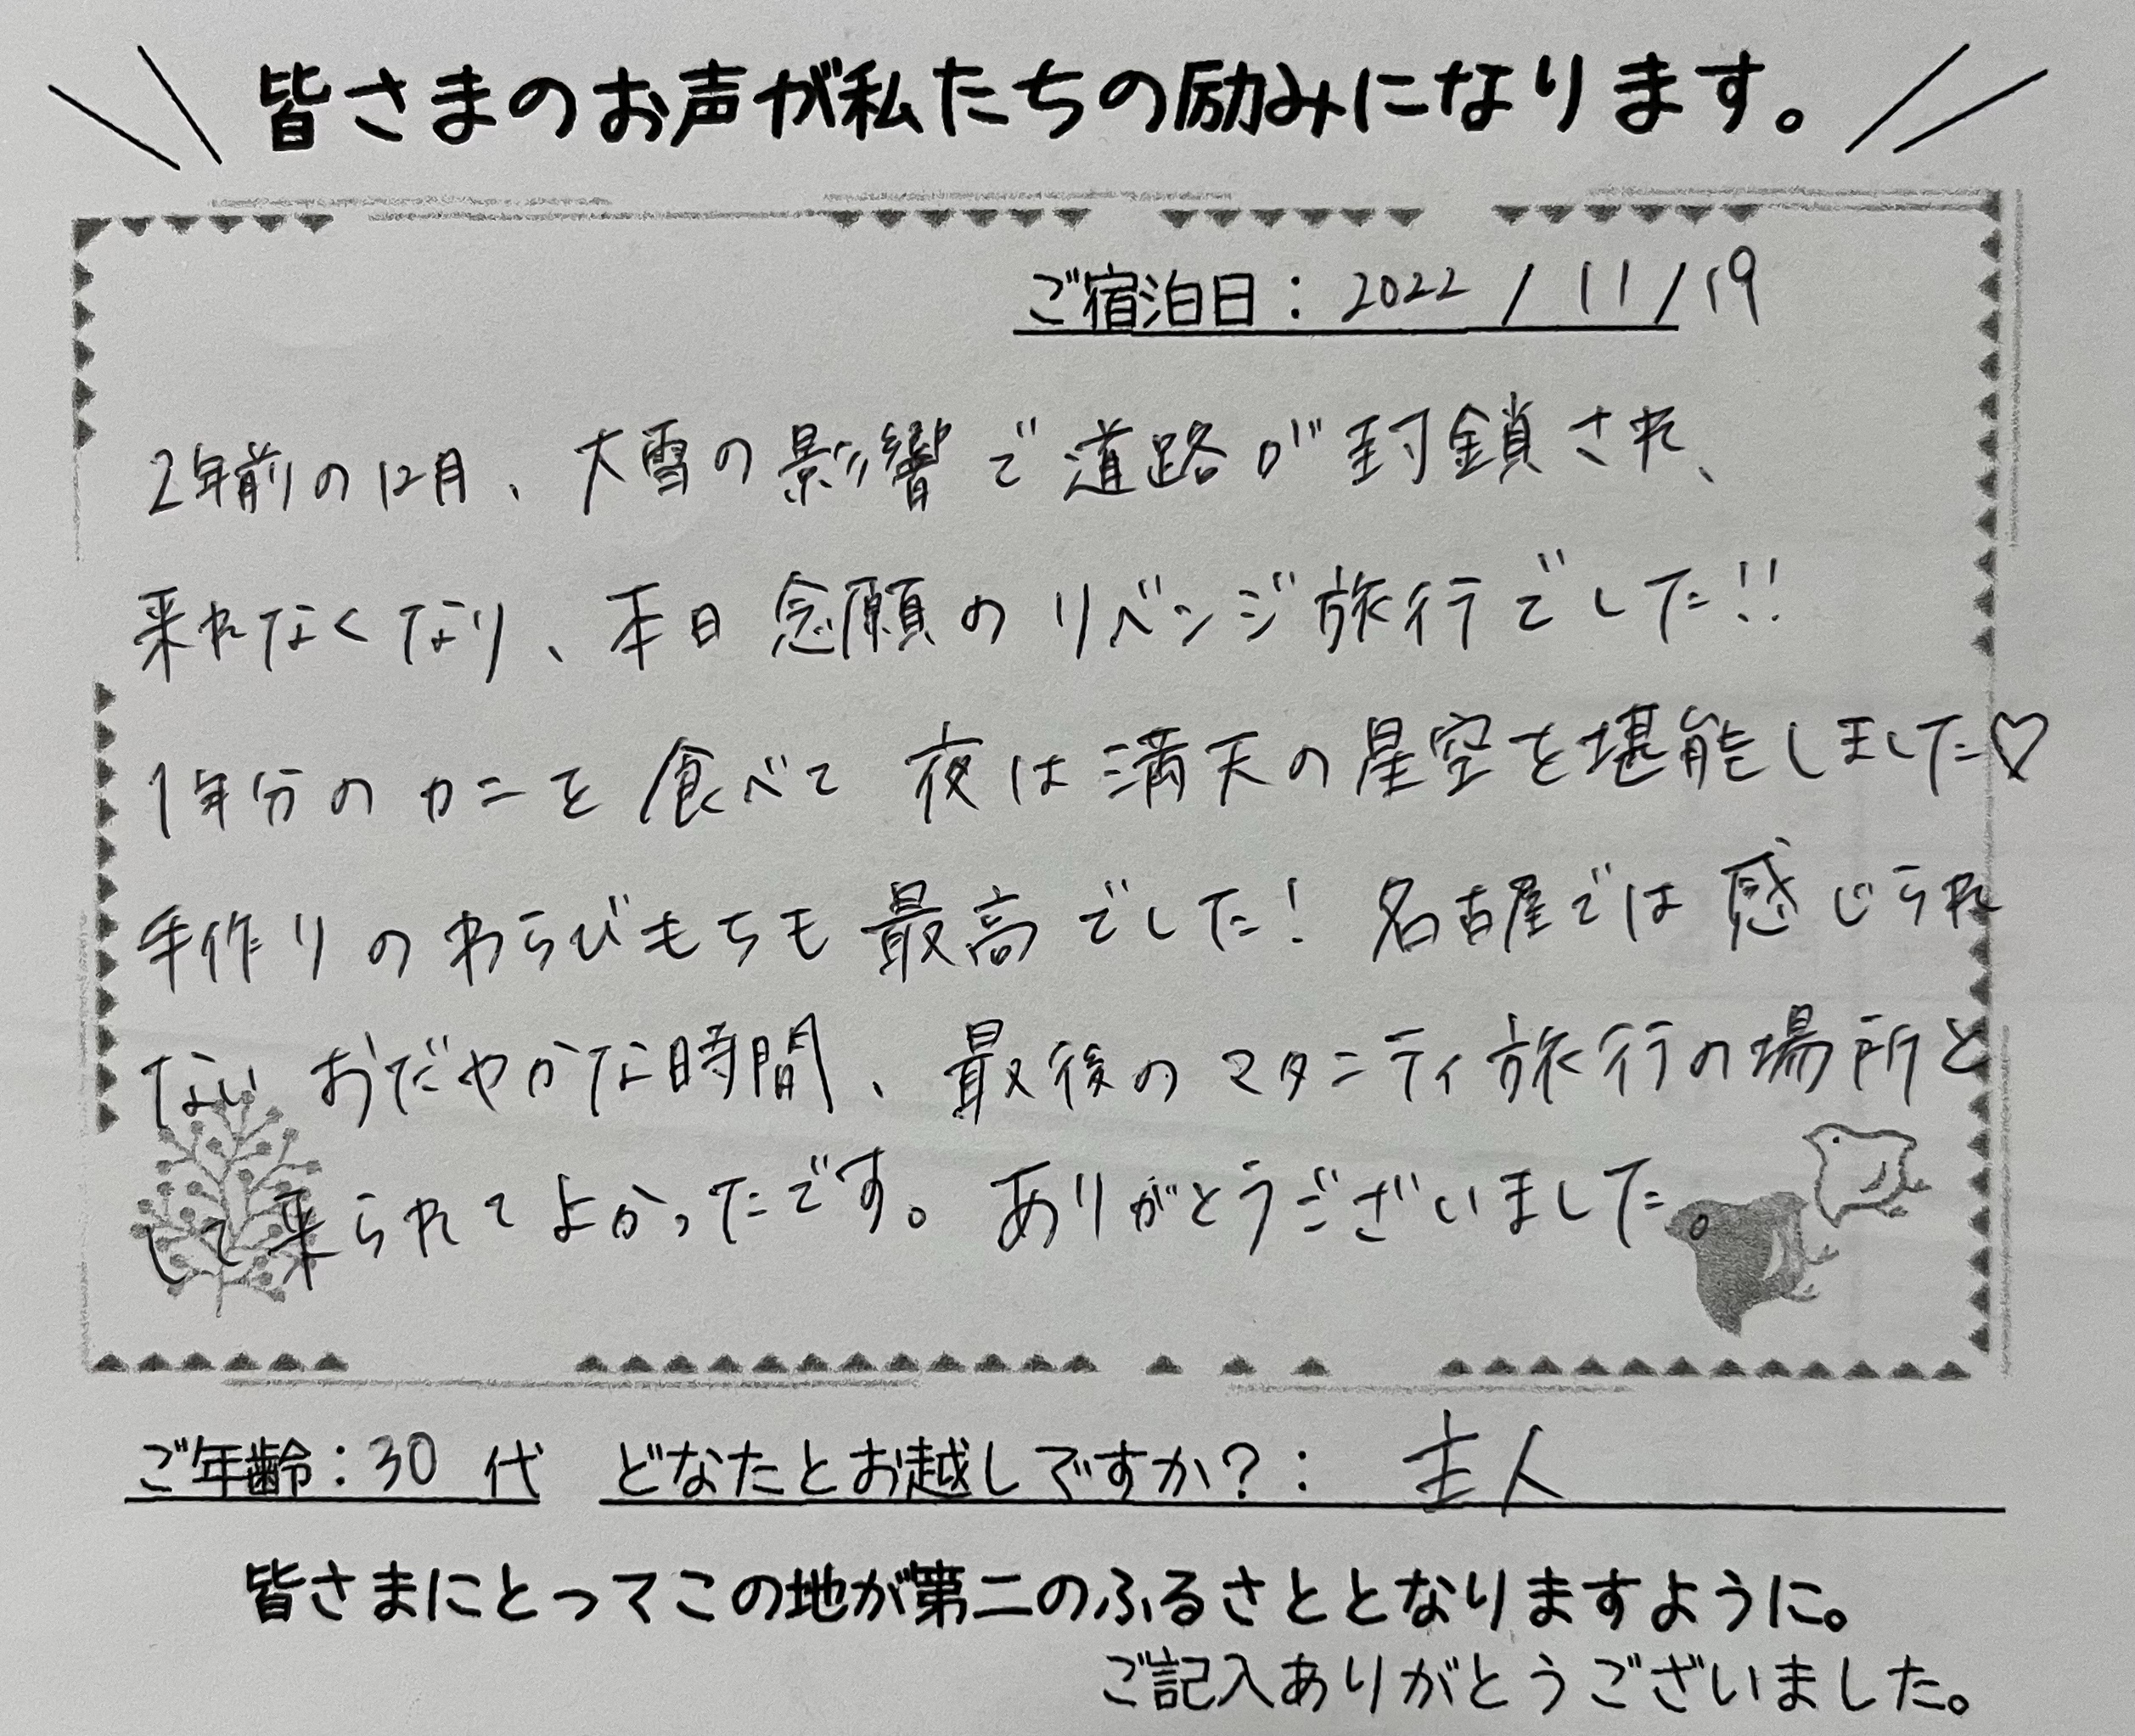 皆さまのお声が私たちの励みになります。
ご宿泊日：2022/11/19
2年前の12月、大雪の影響で道路が封鎖され、
来れなくなり、本日念願のリベンジ旅行でした!!
1年分のカニを食べて夜は満天の星空を堪能しました♡
手作りのわらびもちも最高でした！名古屋では感じられ
ないおだやかな時間、最後のマタニティ旅行の場所と
して来られてよかったです。ありがとうございました。
ご年齢：30代 どなたとお越しですか？：主人
皆さまにとってこの地が第二のふるさととなりますように。
ご記入ありがとうございました。